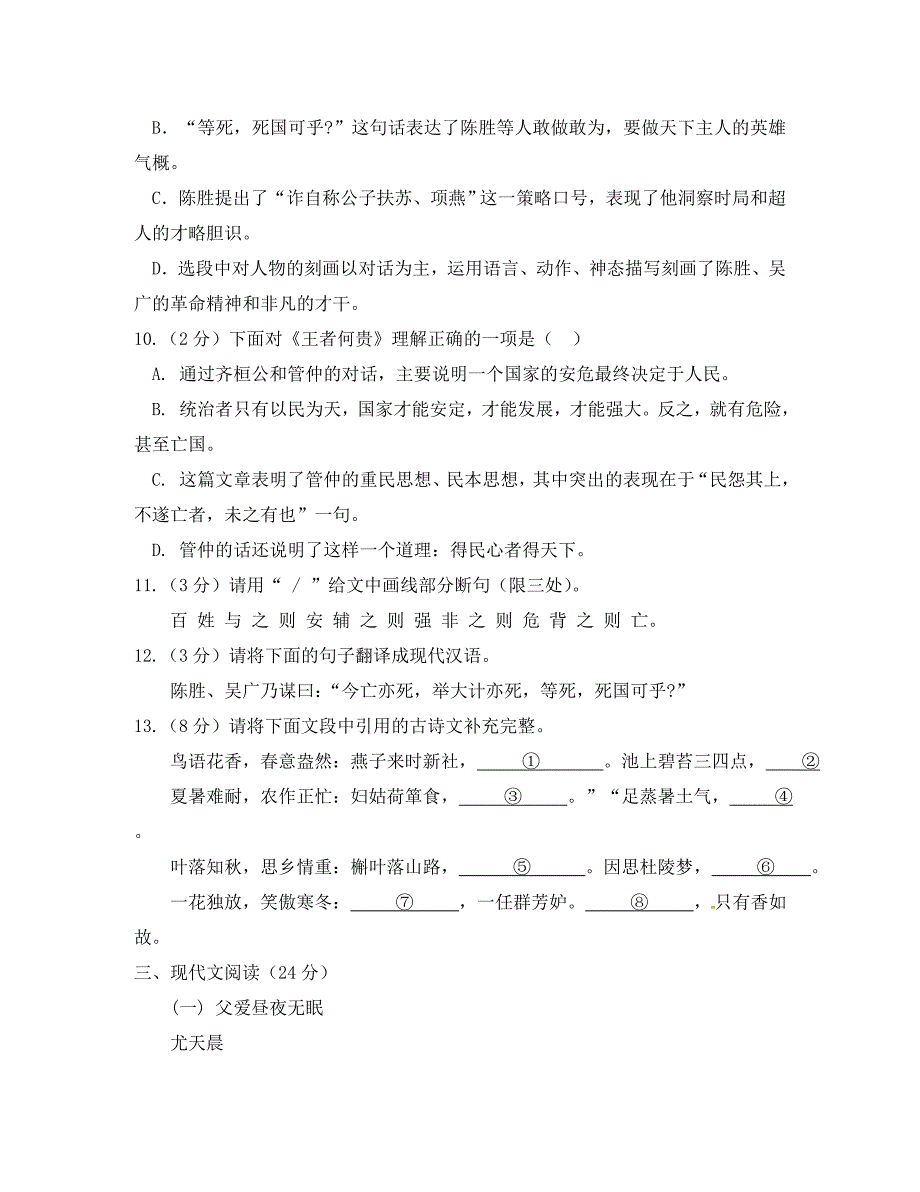 B．“等死，死国可乎?”这句话表达了陈胜等人敢做敢为，要做天下主人的英雄
气概。
C．陈胜提出了“诈自称公子扶苏、项燕”这一策略口号，表现了他洞察时局和超
人的才略胆识。
D．选段中对人物的刻画以对话为主，运用语言、动作、神态描写刻画了陈胜、吴
广的革命精神和非凡的才干。
10.（2 分）下面对《王者何贵》理解正确的一项是（　）
A. 通过齐桓公和管仲的对话，主要说明一个国家的安危最终决定于人民。
B. 统治者只有以民为天，国家才能安定，才能发展，才能强大。反之，就有危险，
甚至亡国。
C. 这篇文章表明了管仲的重民思想、民本思想，其中突出的表现在于“民怨其上，
不遂亡者，未之有也”一句。
D. 管仲的话还说明了这样一个道理：得民心者得天下。
11.（3 分）请用“ / ”给文中画线部分断句（限三处）。
百 姓 与 之 则 安 辅 之 则 强 非 之 则 危 背 之 则 亡。
12.（3 分）请将下面的句子翻译成现代汉语。
陈胜、吴广乃谋曰：“今亡亦死，举大计亦死，等死，死国可乎?”
13.（8 分）请将下面文段中引用的古诗文补充完整。
鸟语花香，春意盎然：燕子来时新社，　①　。池上碧苔三四点，　②
夏暑难耐，农作正忙：妇姑荷箪食，　③　。”“足蒸暑土气，　④
。
叶落知秋，思乡情重：槲叶落山路，　⑤　。因思杜陵梦，　⑥　。
一花独放，笑傲寒冬：　⑦　，一任群芳妒。　⑧　，只有香如
故。
三、现代文阅读（24 分）
(一) 父爱昼夜无眠
尤天晨